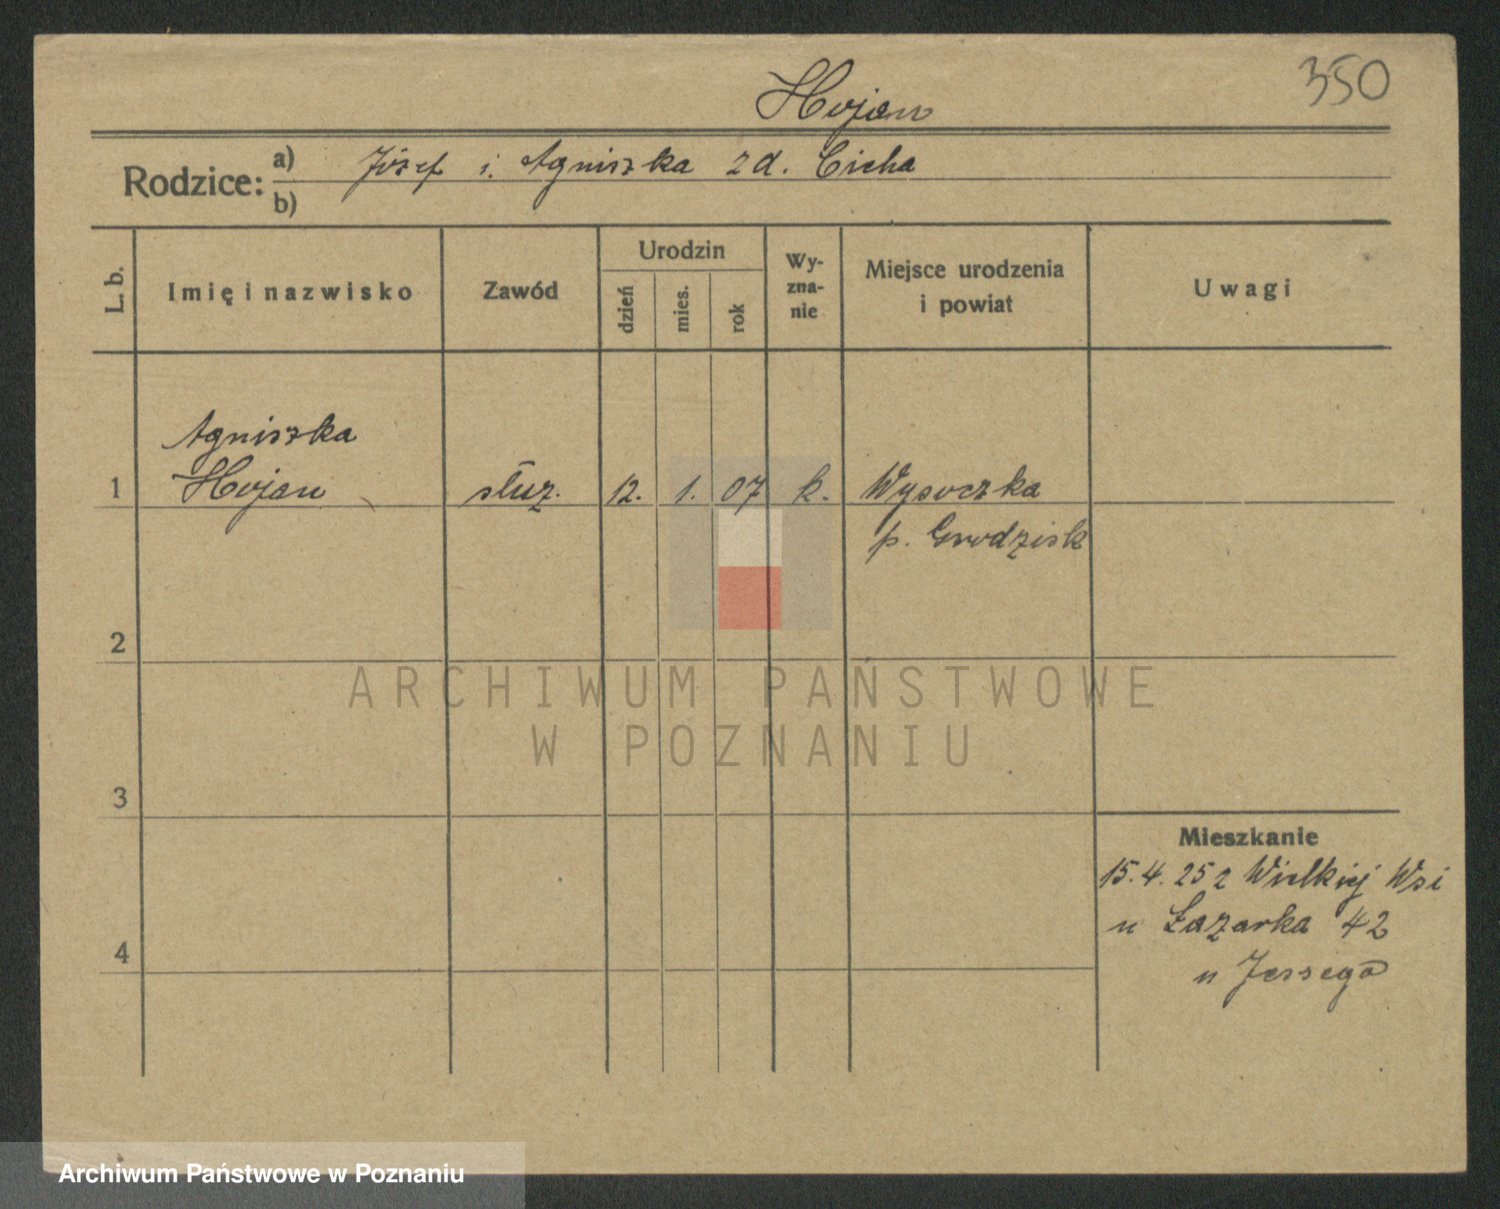 350
Hojan
Rodzice: a) Józef i Agniszka zd. Cicha
b)
L. b. Imię i nazwisko Zawód Urodzin dzień mies. rok Wy-zna-nie Miejsce urodzenia i powiat Uwagi
Agniszka
1 Hojan służ. 12. 1. 07 k. Wysoczka
p. Grodzisk
2
ARCHIWUM PAŃSTWOWE
W POZNANIU
3
Mieszkanie
15.4.25 z Wielkiej Wsi
n Łazarka 42
4
n Jessego
Archiwum Państwowe w Poznaniu